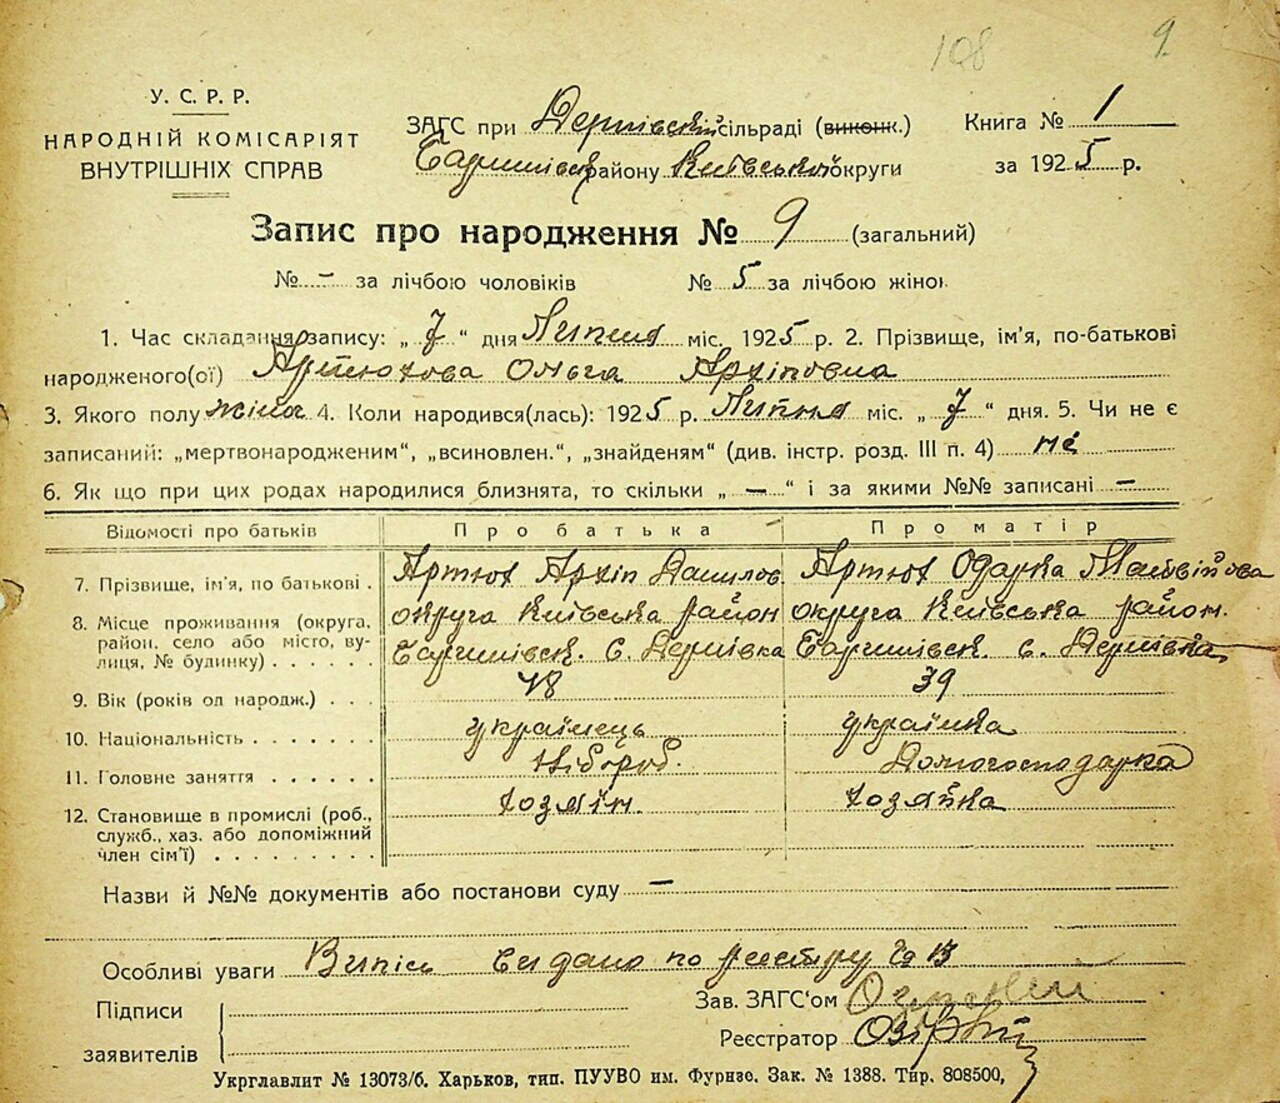 108 9.
У. С. Р. Р.
НАРОДНІЙ КОМІСАРІЯТ
ВНУТРІШНІХ СПРАВ
ЗАГС при Дернівській сільраді (виконк.)
Баришівск району Київської округи
Книга № 1
за 1925 р.
Запис про народження № 9 (загальний)
№ – за лічбою чоловіків № 5 за лічбою жінок
1. Час складання запису: „ 7 “ дня Липня міс. 1925 р. 2. Прізвище, ім'я, по-батькові
народженого(ої) Артюхова Ольга Архіповна
3. Якого полу жіноч 4. Коли народився(лась): 1925 р. Липня міс. „ 7 “ дня. 5. Чи не є
записаний: „мертвонародженим“, „всиновлен.“, „знайденям“ (див. інстр. розд. III п. 4) не
6. Як що при цих родах народилися близнята, то скільки „ — “ і за якими №№ записані —
Відомості про батьків Про батька Про матір
7. Прізвище, ім'я, по батькові . Артюх Архіп Данилов. Артюх Одарка Матвійова
8. Місце проживання (округа, округа Київська район округа Київська район.
район, село або місто, ву- Баришівск. С. Дернівка Баришівск. с. Дернівка
лиця, № будинку) . . . . . .
9. Вік (років од народж.) . . . 48 39
10. Національність . . . . . . . українець українка
11. Головне заняття . . . . . . Хібороб. Домогосподарка
12. Становище в промислі (роб., хозяїн. хозяйка
служб., хаз. або допоміжний
член сім'ї) . . . . . . . . .
Назви й №№ документів або постанови суду —
Особливі уваги Випись видано по реєстру № 13
Підписи
заявителів
Зав. ЗАГС'ом
Реєстратор
Укрглавлит № 13073/б. Харьков, тип. ПУУВО им. Фрунзе. Зак. № 1388. Тир. 808500,